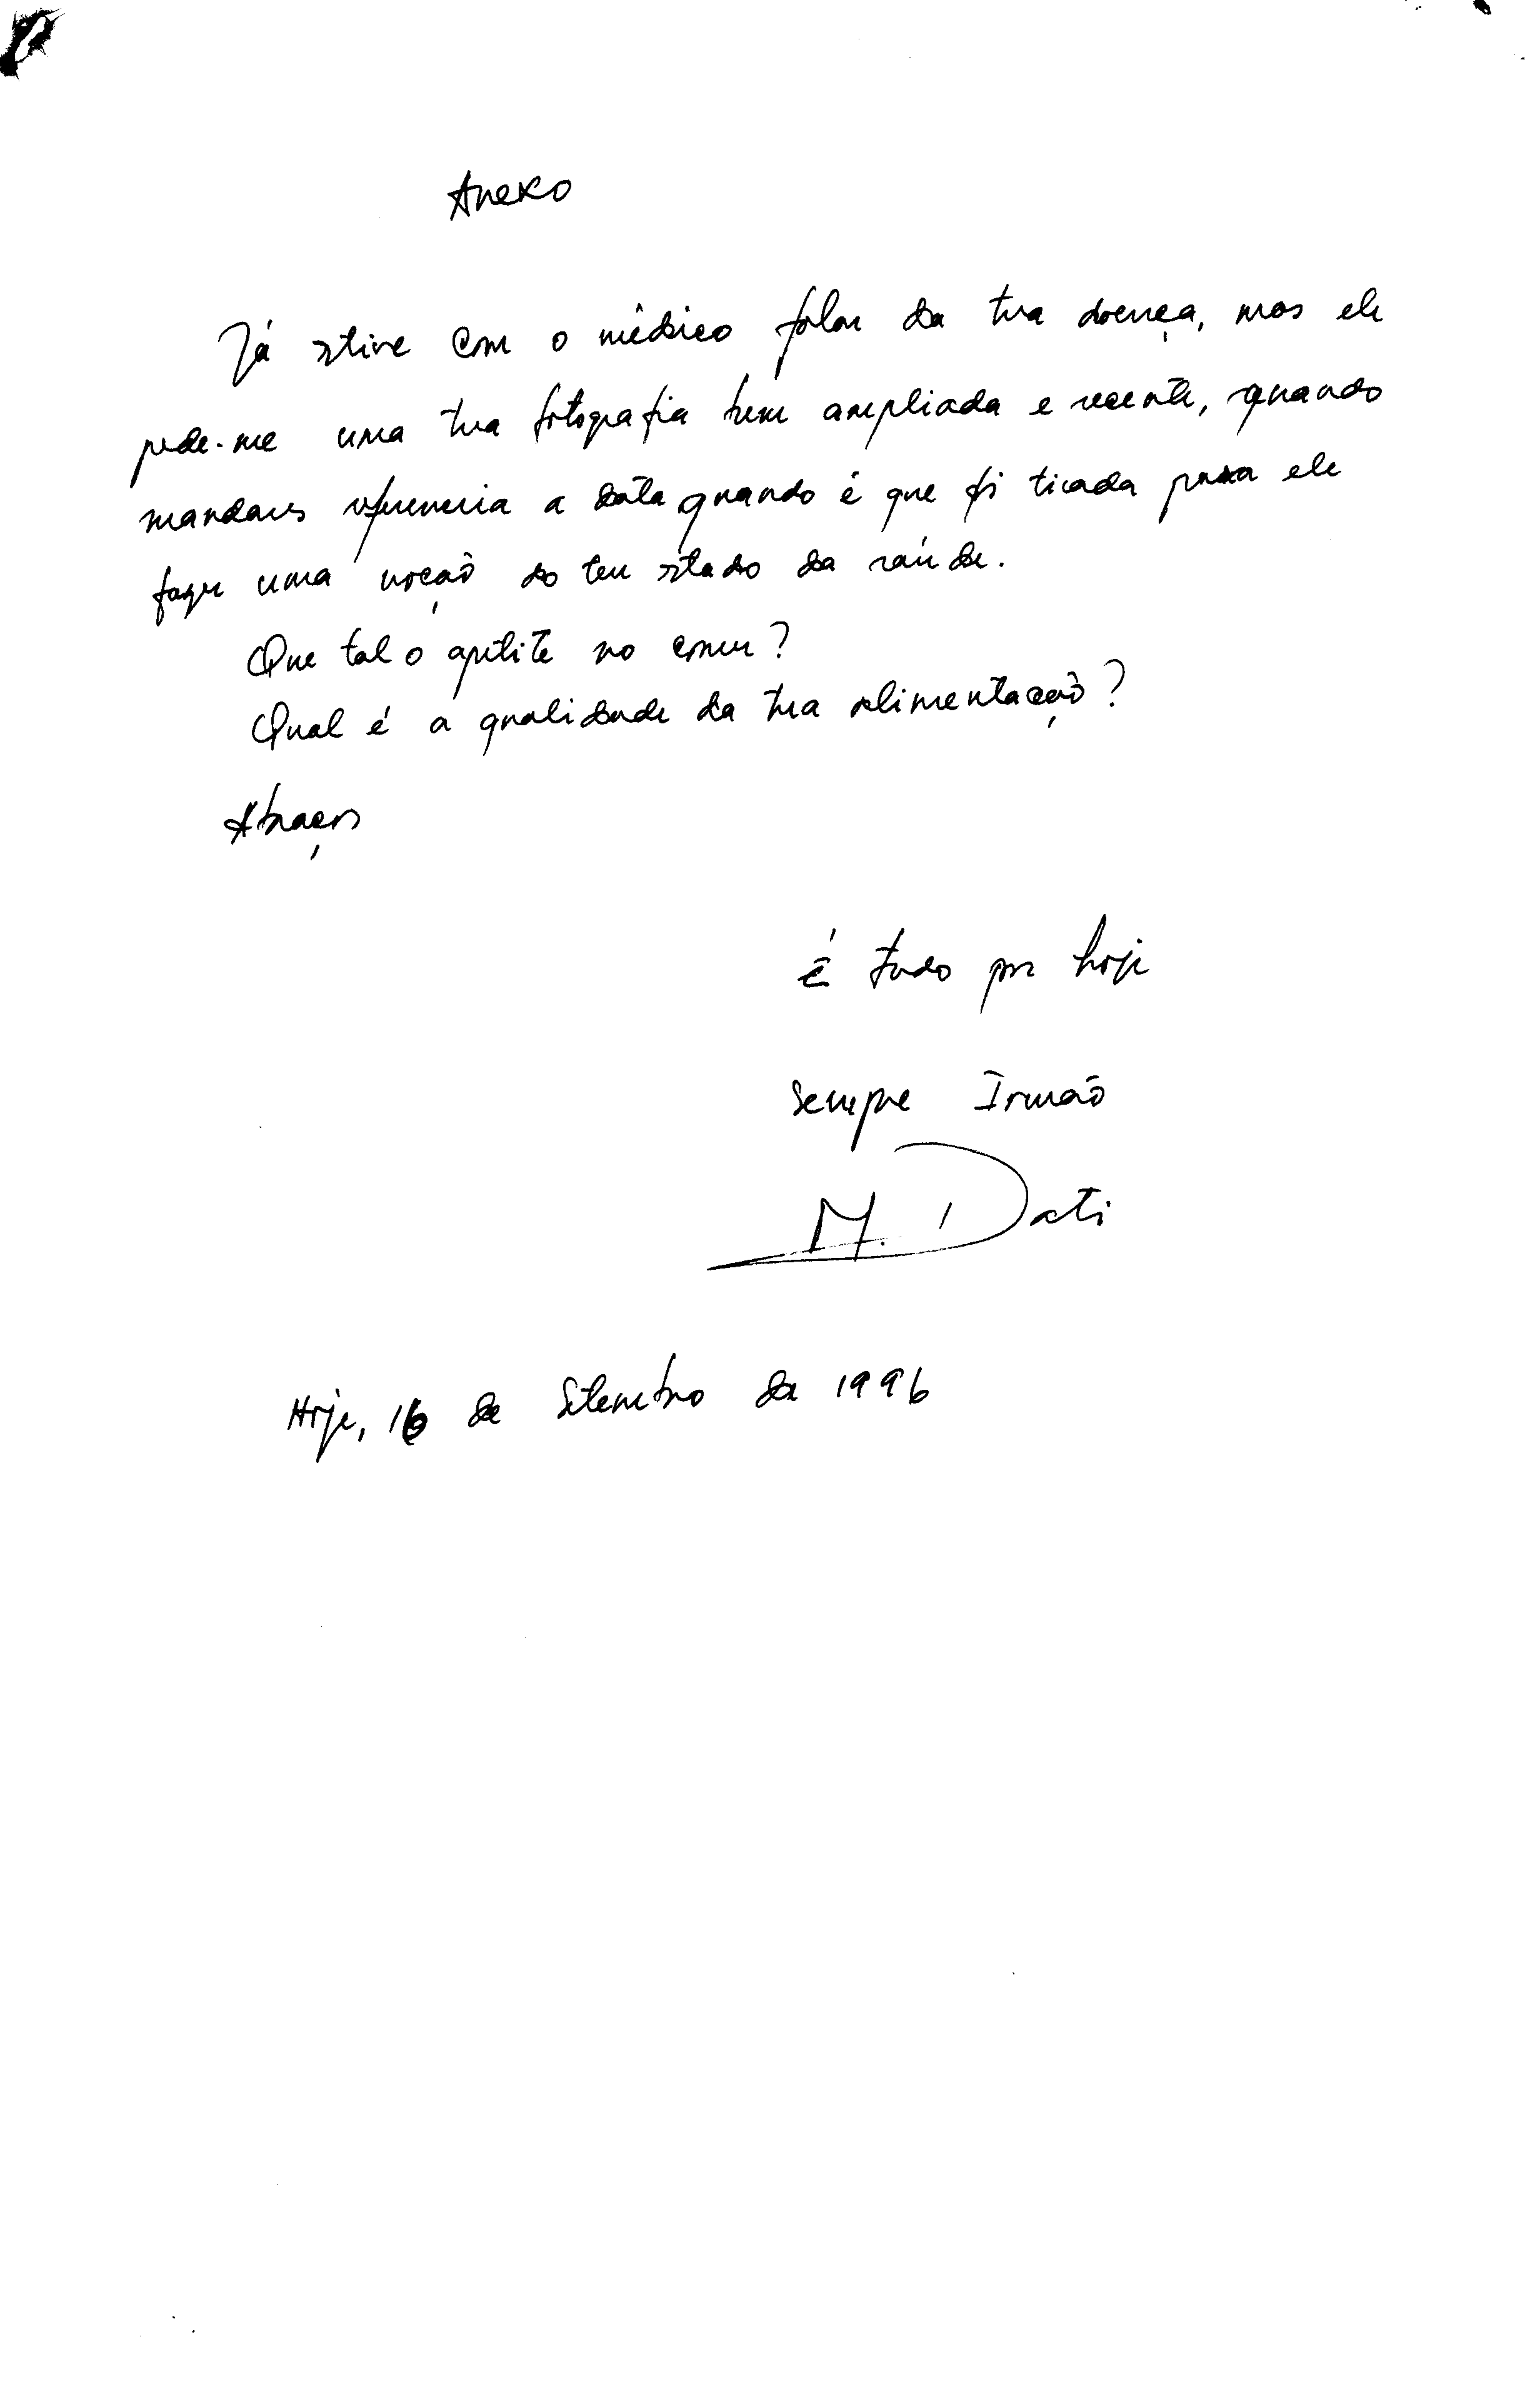 Anexo
Já estive com o médico falar da tua doença, mas ele
pede-me uma tua fotografia bem ampliada e recente, quando
mandares referencia a data quando é que foi tirada para ele
fazer uma noção do teu estado da saúde.
Que tal o apetite no comer?
Qual é a qualidade da tua alimentação?
Abraços
É tudo por hoje
Sempre Irmão
M. Dati
Hoje, 16 de Setembro de 1996